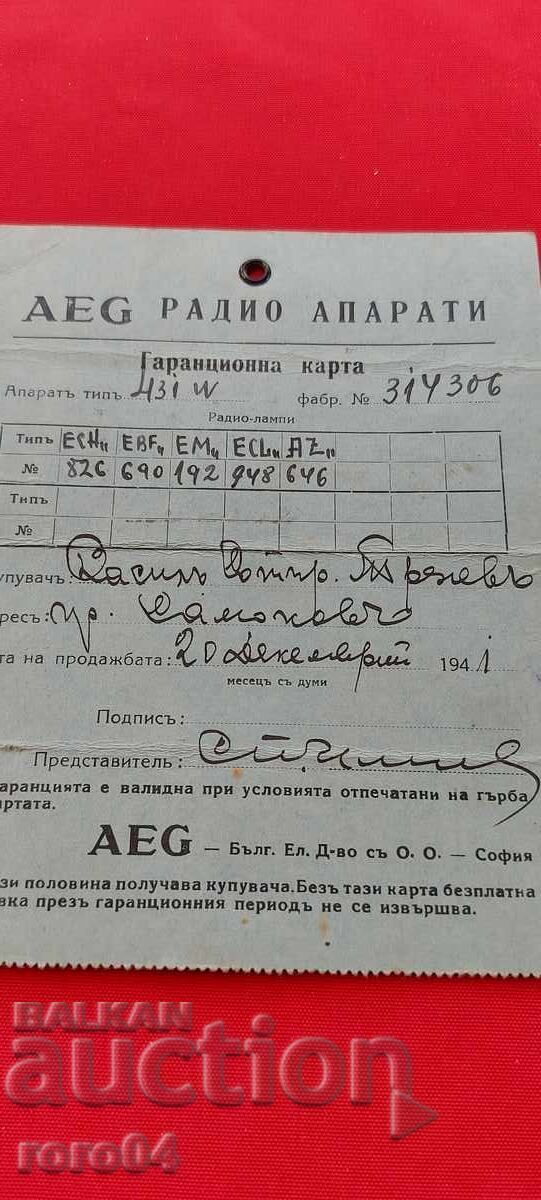 AEG РАДИО АПАРАТИ
Гаранционна карта
Апаратъ типъ 431 W фабр. № 314306
Радио-лампи
Типъ ECH11 EBF11 EM11 ECL11 AZ11
№ 826 690 192 948 646
Типъ
№
упувачъ: Василъ
ресъ: гр. Самоковъ
та на продажбата: 20 Декемврий 1941
месецъ съ думи
Подписъ:
Представитель:
аранцията е валидна при условията отпечатани на гърба
ртата.
AEG — Бълг. Ел. Д-во съ О. О. — София
зи половина получава купувача. Безъ тази карта безплатна
вка презъ гаранционния периодъ не се извършва.
BALKAN
auction
roro04